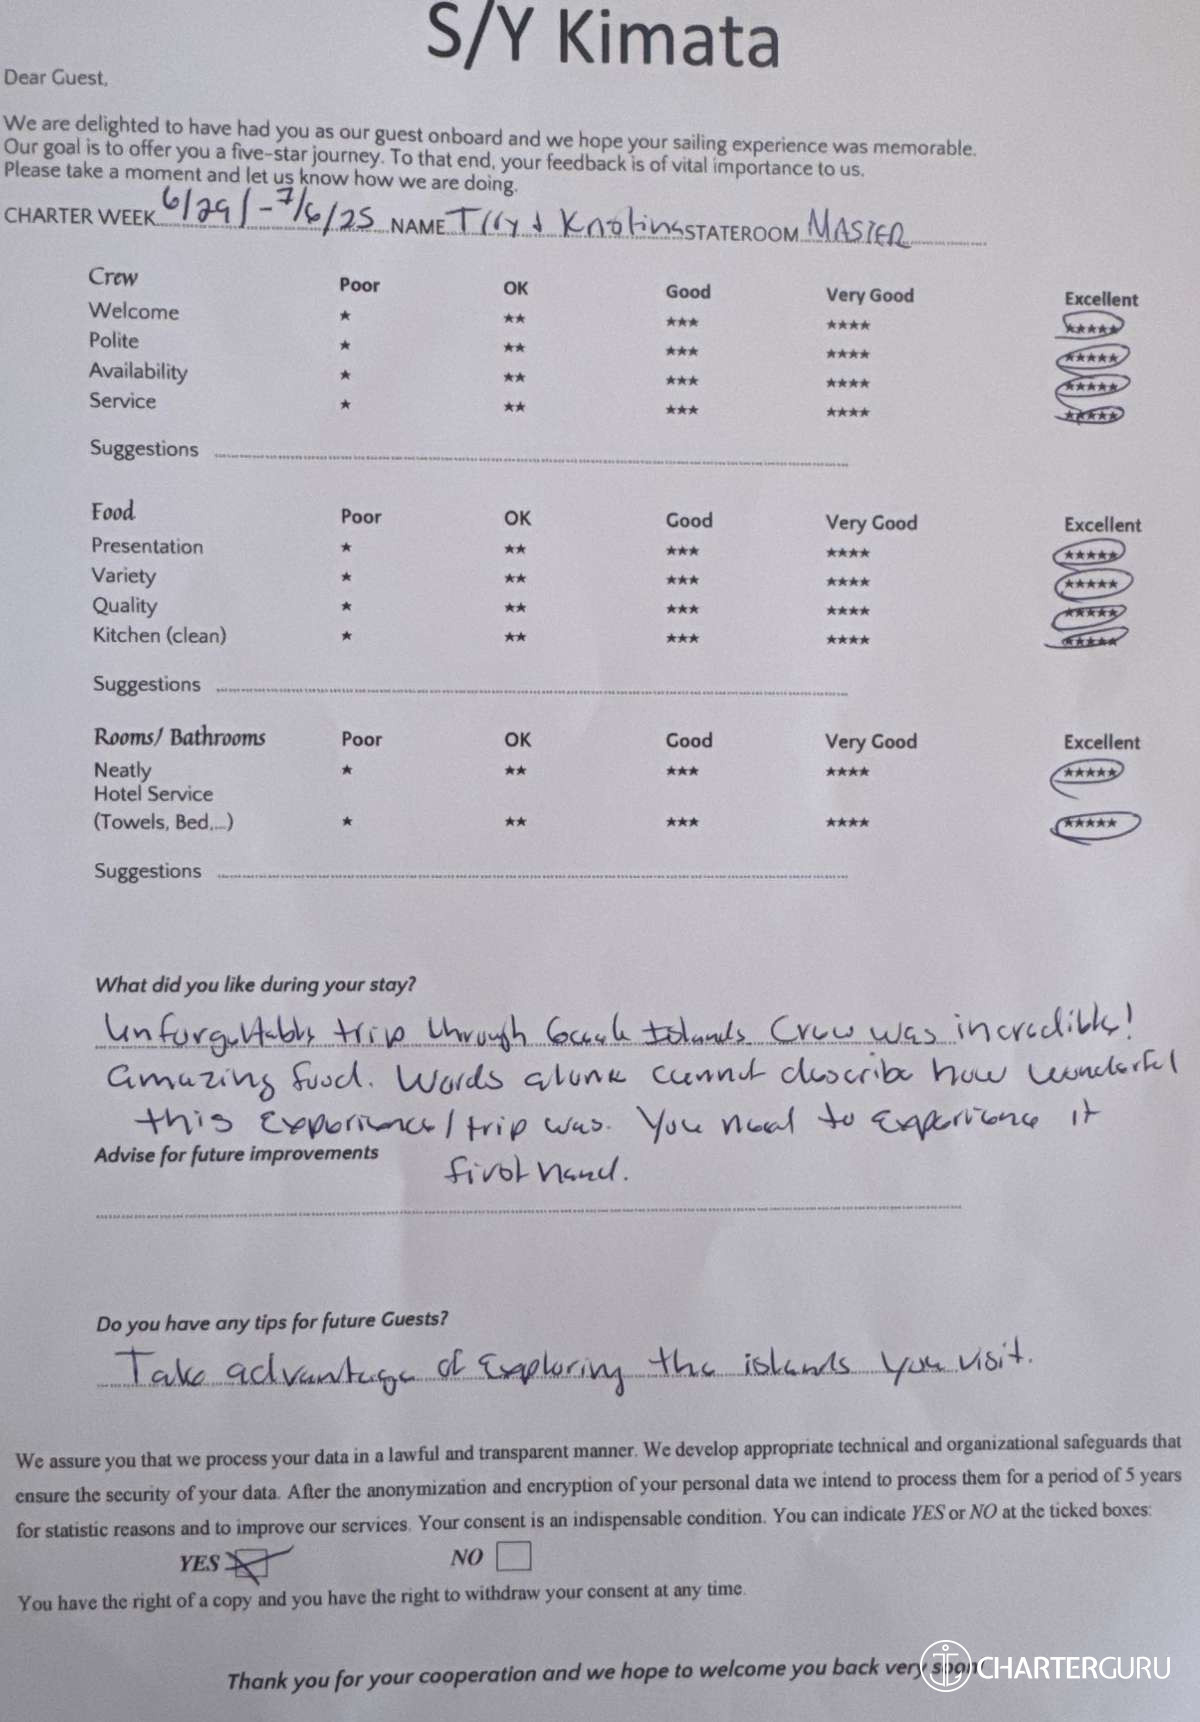 S/Y Kimata
Dear Guest,
We are delighted to have had you as our guest onboard and we hope your sailing experience was memorable.
Our goal is to offer you a five-star journey. To that end, your feedback is of vital importance to us.
Please take a moment and let us know how we are doing.
CHARTER WEEK 6/29/-7/6/25 NAME & STATEROOM MASTER
Crew Poor OK Good Very Good Excellent
Welcome ★ ★★ ★★★ ★★★★ ★★★★★
Polite ★ ★★ ★★★ ★★★★ ★★★★★
Availability ★ ★★ ★★★ ★★★★ ★★★★★
Service ★ ★★ ★★★ ★★★★ ★★★★★
Suggestions
Food Poor OK Good Very Good Excellent
Presentation ★ ★★ ★★★ ★★★★ ★★★★★
Variety ★ ★★ ★★★ ★★★★ ★★★★★
Quality ★ ★★ ★★★ ★★★★ ★★★★★
Kitchen (clean) ★ ★★ ★★★ ★★★★ ★★★★★
Suggestions
Rooms/ Bathrooms Poor OK Good Very Good Excellent
Neatly ★ ★★ ★★★ ★★★★ ★★★★★
Hotel Service
(Towels, Bed,...) ★ ★★ ★★★ ★★★★ ★★★★★
Suggestions
What did you like during your stay?
Unforgettable trip through Greek Islands Crew was incredible!
amazing food. Words alone cannot describe how wonderful
this experience/trip was. You need to experience it
Advise for future improvements
first hand.
Do you have any tips for future Guests?
Take advantage of exploring the islands you visit.
We assure you that we process your data in a lawful and transparent manner. We develop appropriate technical and organizational safeguards that
ensure the security of your data. After the anonymization and encryption of your personal data we intend to process them for a period of 5 years
for statistic reasons and to improve our services. Your consent is an indispensable condition. You can indicate YES or NO at the ticked boxes:
YES NO
You have the right of a copy and you have the right to withdraw your consent at any time.
Thank you for your cooperation and we hope to welcome you back very soon
CHARTERGURU